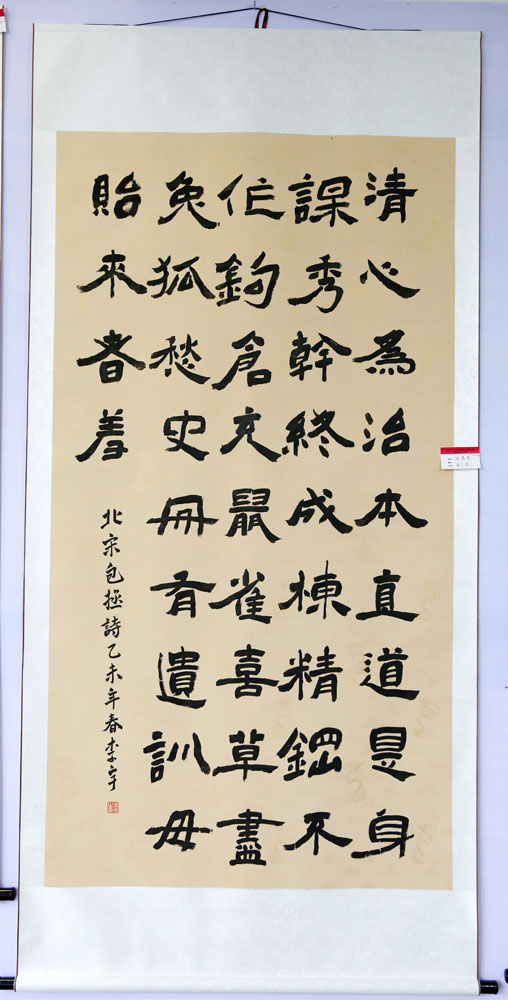 清心為治本直道是身
謀秀幹終成棟精鋼不
作鉤倉充鼠雀喜草盡
兔狐愁史冊有遺訓毋
貽來者羞
北宋包拯詩乙未年春李